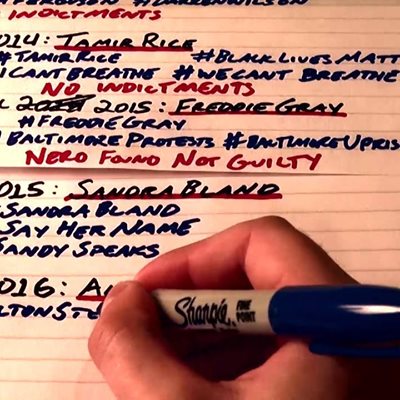 #DARRENWILSON
INDICTMENTS
2014: TAMIR RICE
#TAMIRRICE #BLACKLIVESMATT
ICANTBREATHE #WECANT BREATHE
NO INDICTMENTS
2015: FREDDIE GRAY
#FREDDIEGRAY
BALTIMORE PROTESTS #BALTIMOREUPRIS
NERO FOUND NOT GUILTY
2015: SANDRA BLAND
SANDRA BLAND
SAY HER NAME
SANDY SPEAKS
2016: A
LTON ST
Sharpie FINE POINT